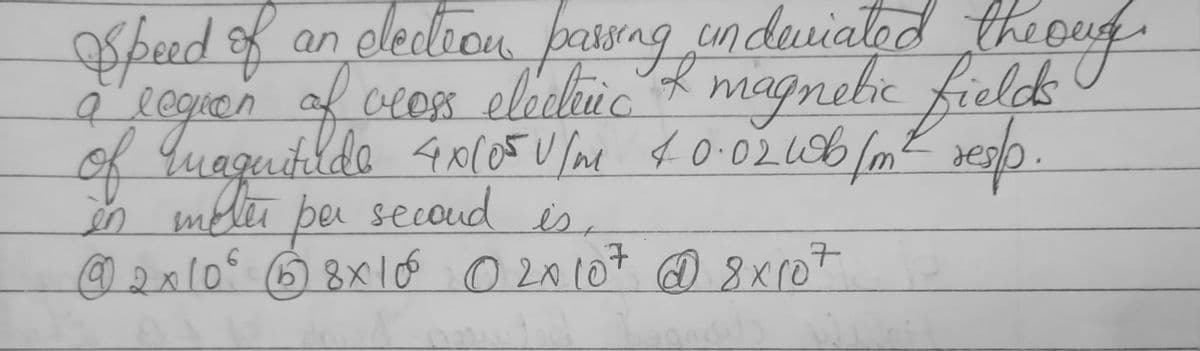 Speed of an electron passing undeviated through
a region of cross electric & magnetic fields
of magnitude 4x10⁵ V/m & 0.02 wb/m² resp.
in meter per second is,
(a) 2x10⁶ (b) 8x10⁶ (c) 2x10⁷ (d) 8x10⁷